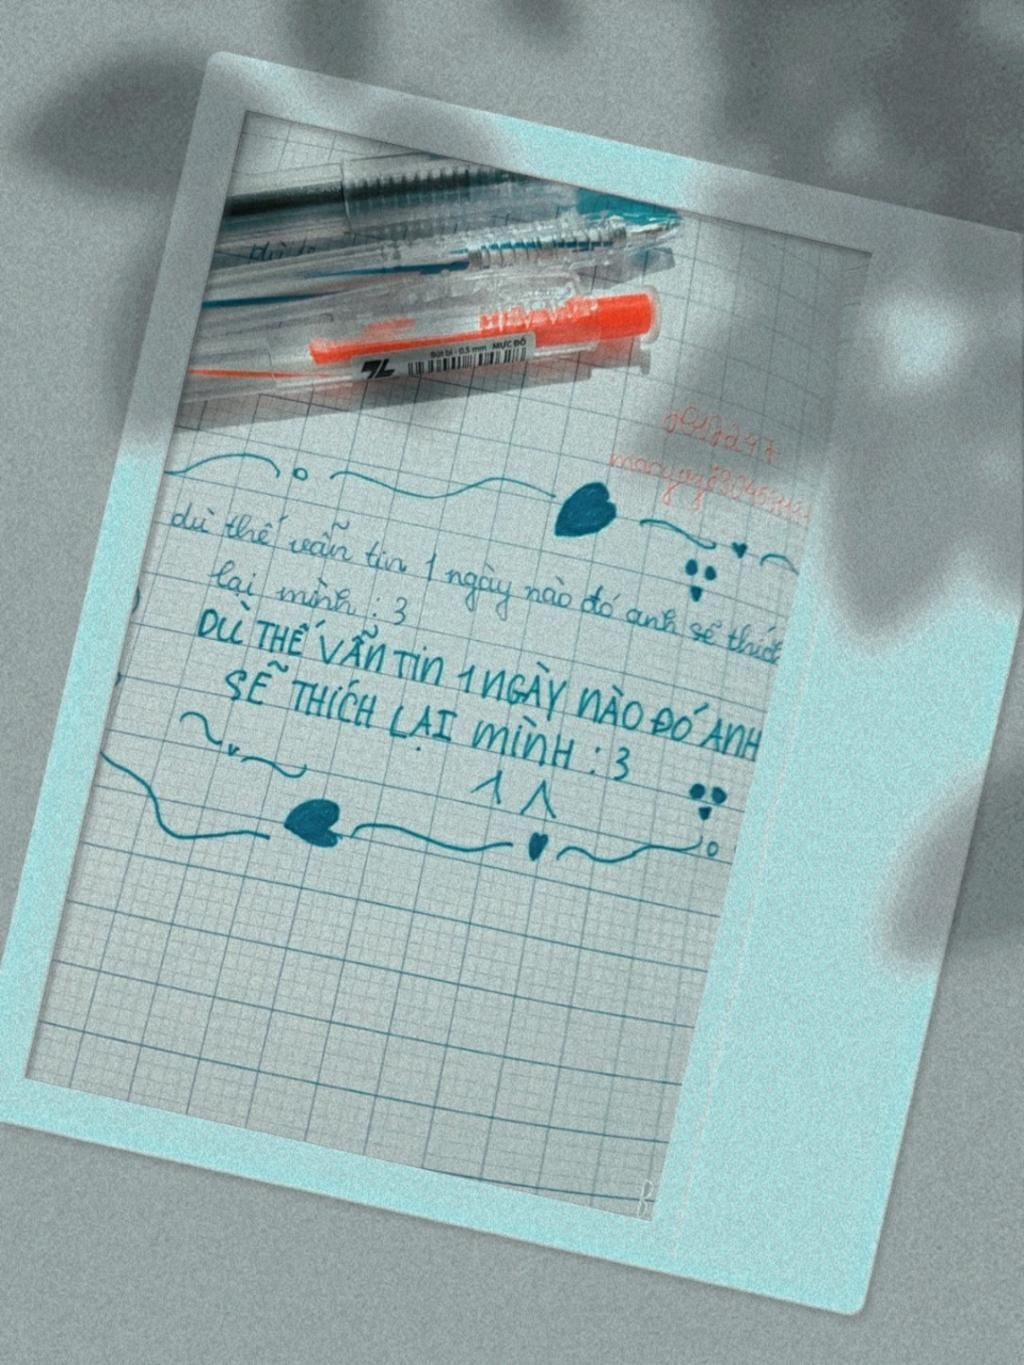 Bút bi - 0.5 mm MỰC ĐỎ
dù thế vẫn tin 1 ngày nào đó anh sẽ thích
lại mình : 3
DÙ THẾ VẪN TIN 1 NGÀY NÀO ĐÓ ANH
SẼ THÍCH LẠI MÌNH : 3